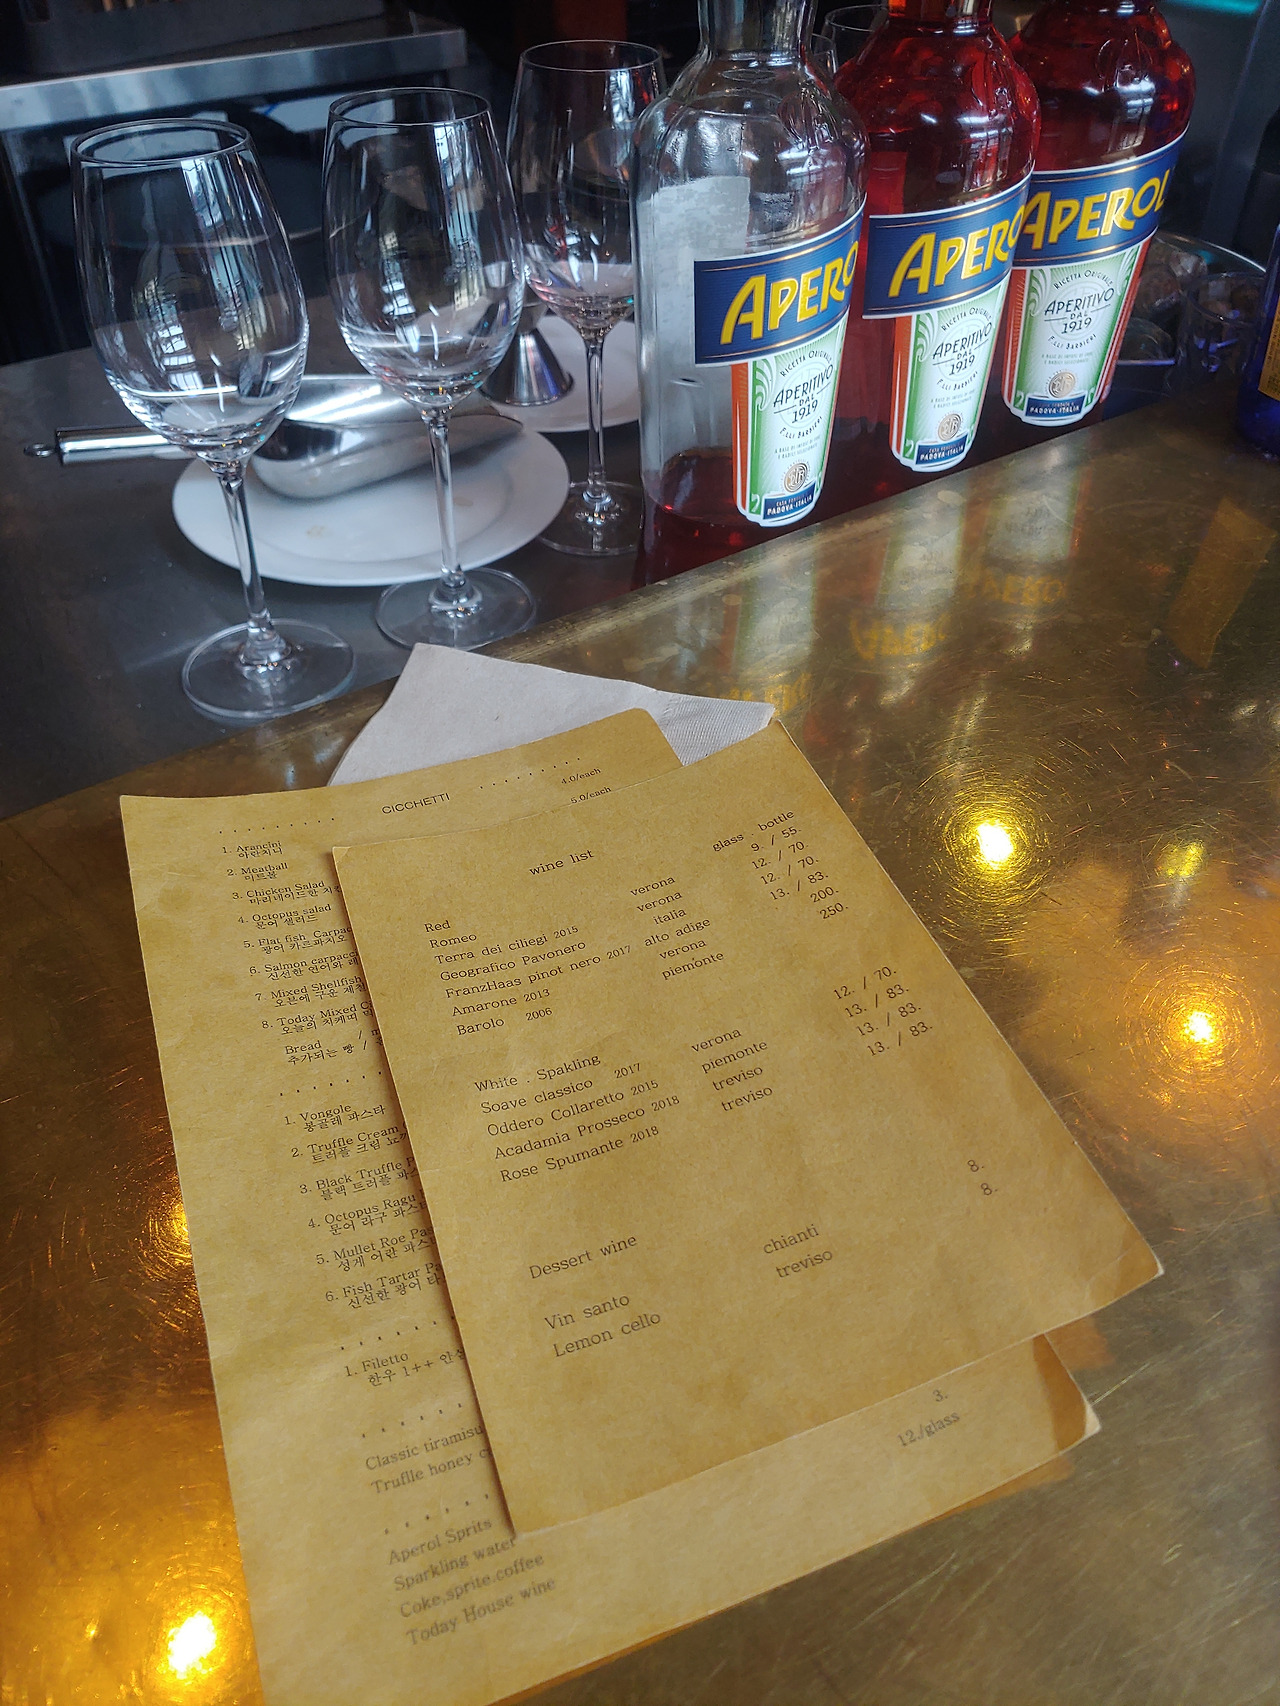 APERO
RICETTA ORIGINALE
APERITIVO
DAL
1919
F.LLI BARBIERI
PADOVA·ITALIA
APERO
RICETTA ORIGINALE
APERITIVO
DAL
1919
F.LLI BARBIERI
PADOVA·ITALIA
APEROL
RICETTA ORIGINALE
APERITIVO
DAL
1919
F.LLI BARBIERI
PADOVA-ITALIA
CICCHETTI
4.0/each
6.0/each
1. Arancini
아란치니
2. Meatball
미트볼
3. Chicken Salad
마리네이드한
4. Octopus salad
문어 샐러드
5. Flat fish Carpac
광어 카르파치오
6. Salmon carpacc
신선한 연어와
7. Mixed Shellfish
오븐에 구운
8. Today Mixed C
오늘의 치케띠
Bread /
추가되는 빵 /
1. Vongole
봉골레 파스타
2. Truffle Cream
트러플 크림
3. Black Truffle P
블랙 트러플 파스
4. Octopus Ragu
문어 라구 파스
5. Mullet Roe Pas
성게 어란 파스
6. Fish Tartar Pa
신선한 광어 타
1. Filetto
한우 1++ 안심
Classic tiramisu
Truflle honey c
Aperol Sprits
Sparkling water
Coke,sprite,coffee 3.
Today House wine 12./glass
wine list
glass . bottle
Red
Romeo verona 9. / 55.
Terra dei ciliegi 2015 verona 12. / 70.
Geografico Pavonero italia 12. / 70.
FranzHaas pinot nero 2017 alto adige 13. / 83.
Amarone 2013 verona 200.
Barolo 2006 piemonte 250.
White . Spakling
Soave classico 2017 verona 12. / 70.
Oddero Collaretto 2015 piemonte 13. / 83.
Acadamia Prosseco 2018 treviso 13. / 83.
Rose Spumante 2018 treviso 13. / 83.
Dessert wine
Vin santo chianti 8.
Lemon cello treviso 8.